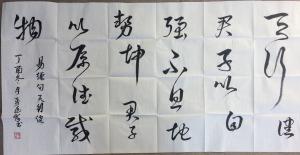 天行健
君子以自
强不息地
势坤君子
以厚德载
物
易经句
丁酉冬月